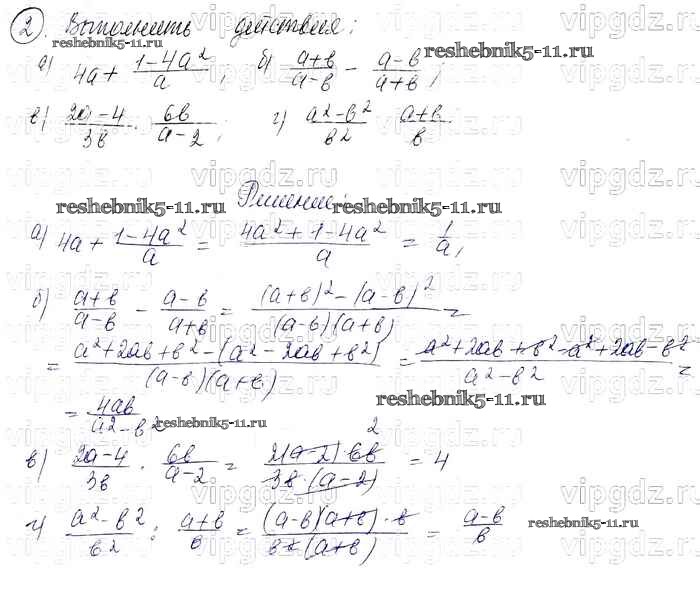 2. Выполнить действия:
а) 4a + (1-4a²)/a, б) (a+b)/(a-b) - (a-b)/(a+b),
в) (2a-4)/(3b) · (6b)/(a-2); г) (a²-b²)/b² : (a+b)/b
Решение:
а) 4a + (1-4a²)/a = (4a²+1-4a²)/a = 1/a,
б) (a+b)/(a-b) - (a-b)/(a+b) = ((a+b)²-(a-b)²)/((a-b)(a+b)) =
= (a²+2ab+b²-(a²-2ab+b²))/((a-b)(a+b)) = (a²+2ab+b²-a²+2ab-b²)/(a²-b²) =
= 4ab/(a²-b²)
в) (2a-4)/(3b) · (6b)/(a-2) = (2(a-2) 6b)/(3b·(a-2)) 2 = 4
г) (a²-b²)/b² : (a+b)/b = ((a-b)(a+b)·b)/(b²(a+b)) = (a-b)/b
reshebnik5-11.ru
vipgdz.ru